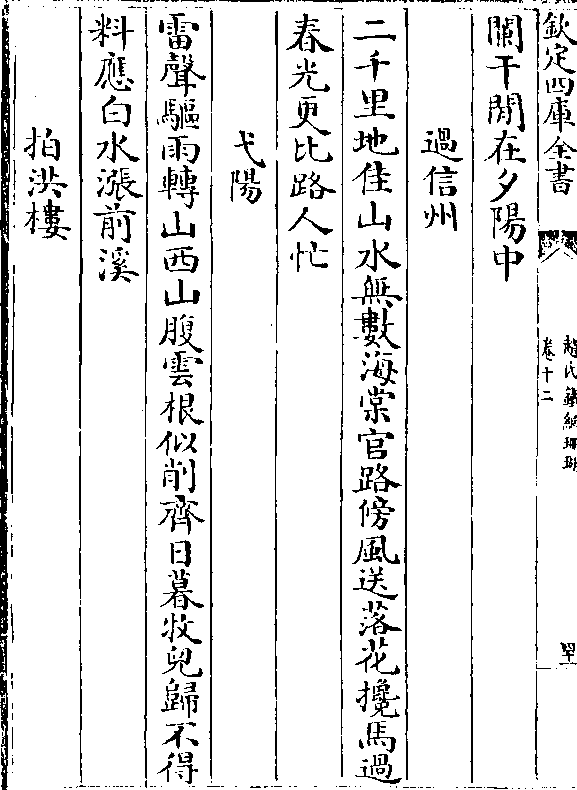 欽定四庫全書
趙氏鐵網珊瑚
卷十二
闌干閒在夕陽中
過信州
二千里地佳山水無數海棠官路傍風送落花攙馬過
春光更比路人忙
弋陽
雷聲驅雨轉山西山腹雲根似削齊日暮牧兒歸不得
料應白水漲前溪
拍洪樓